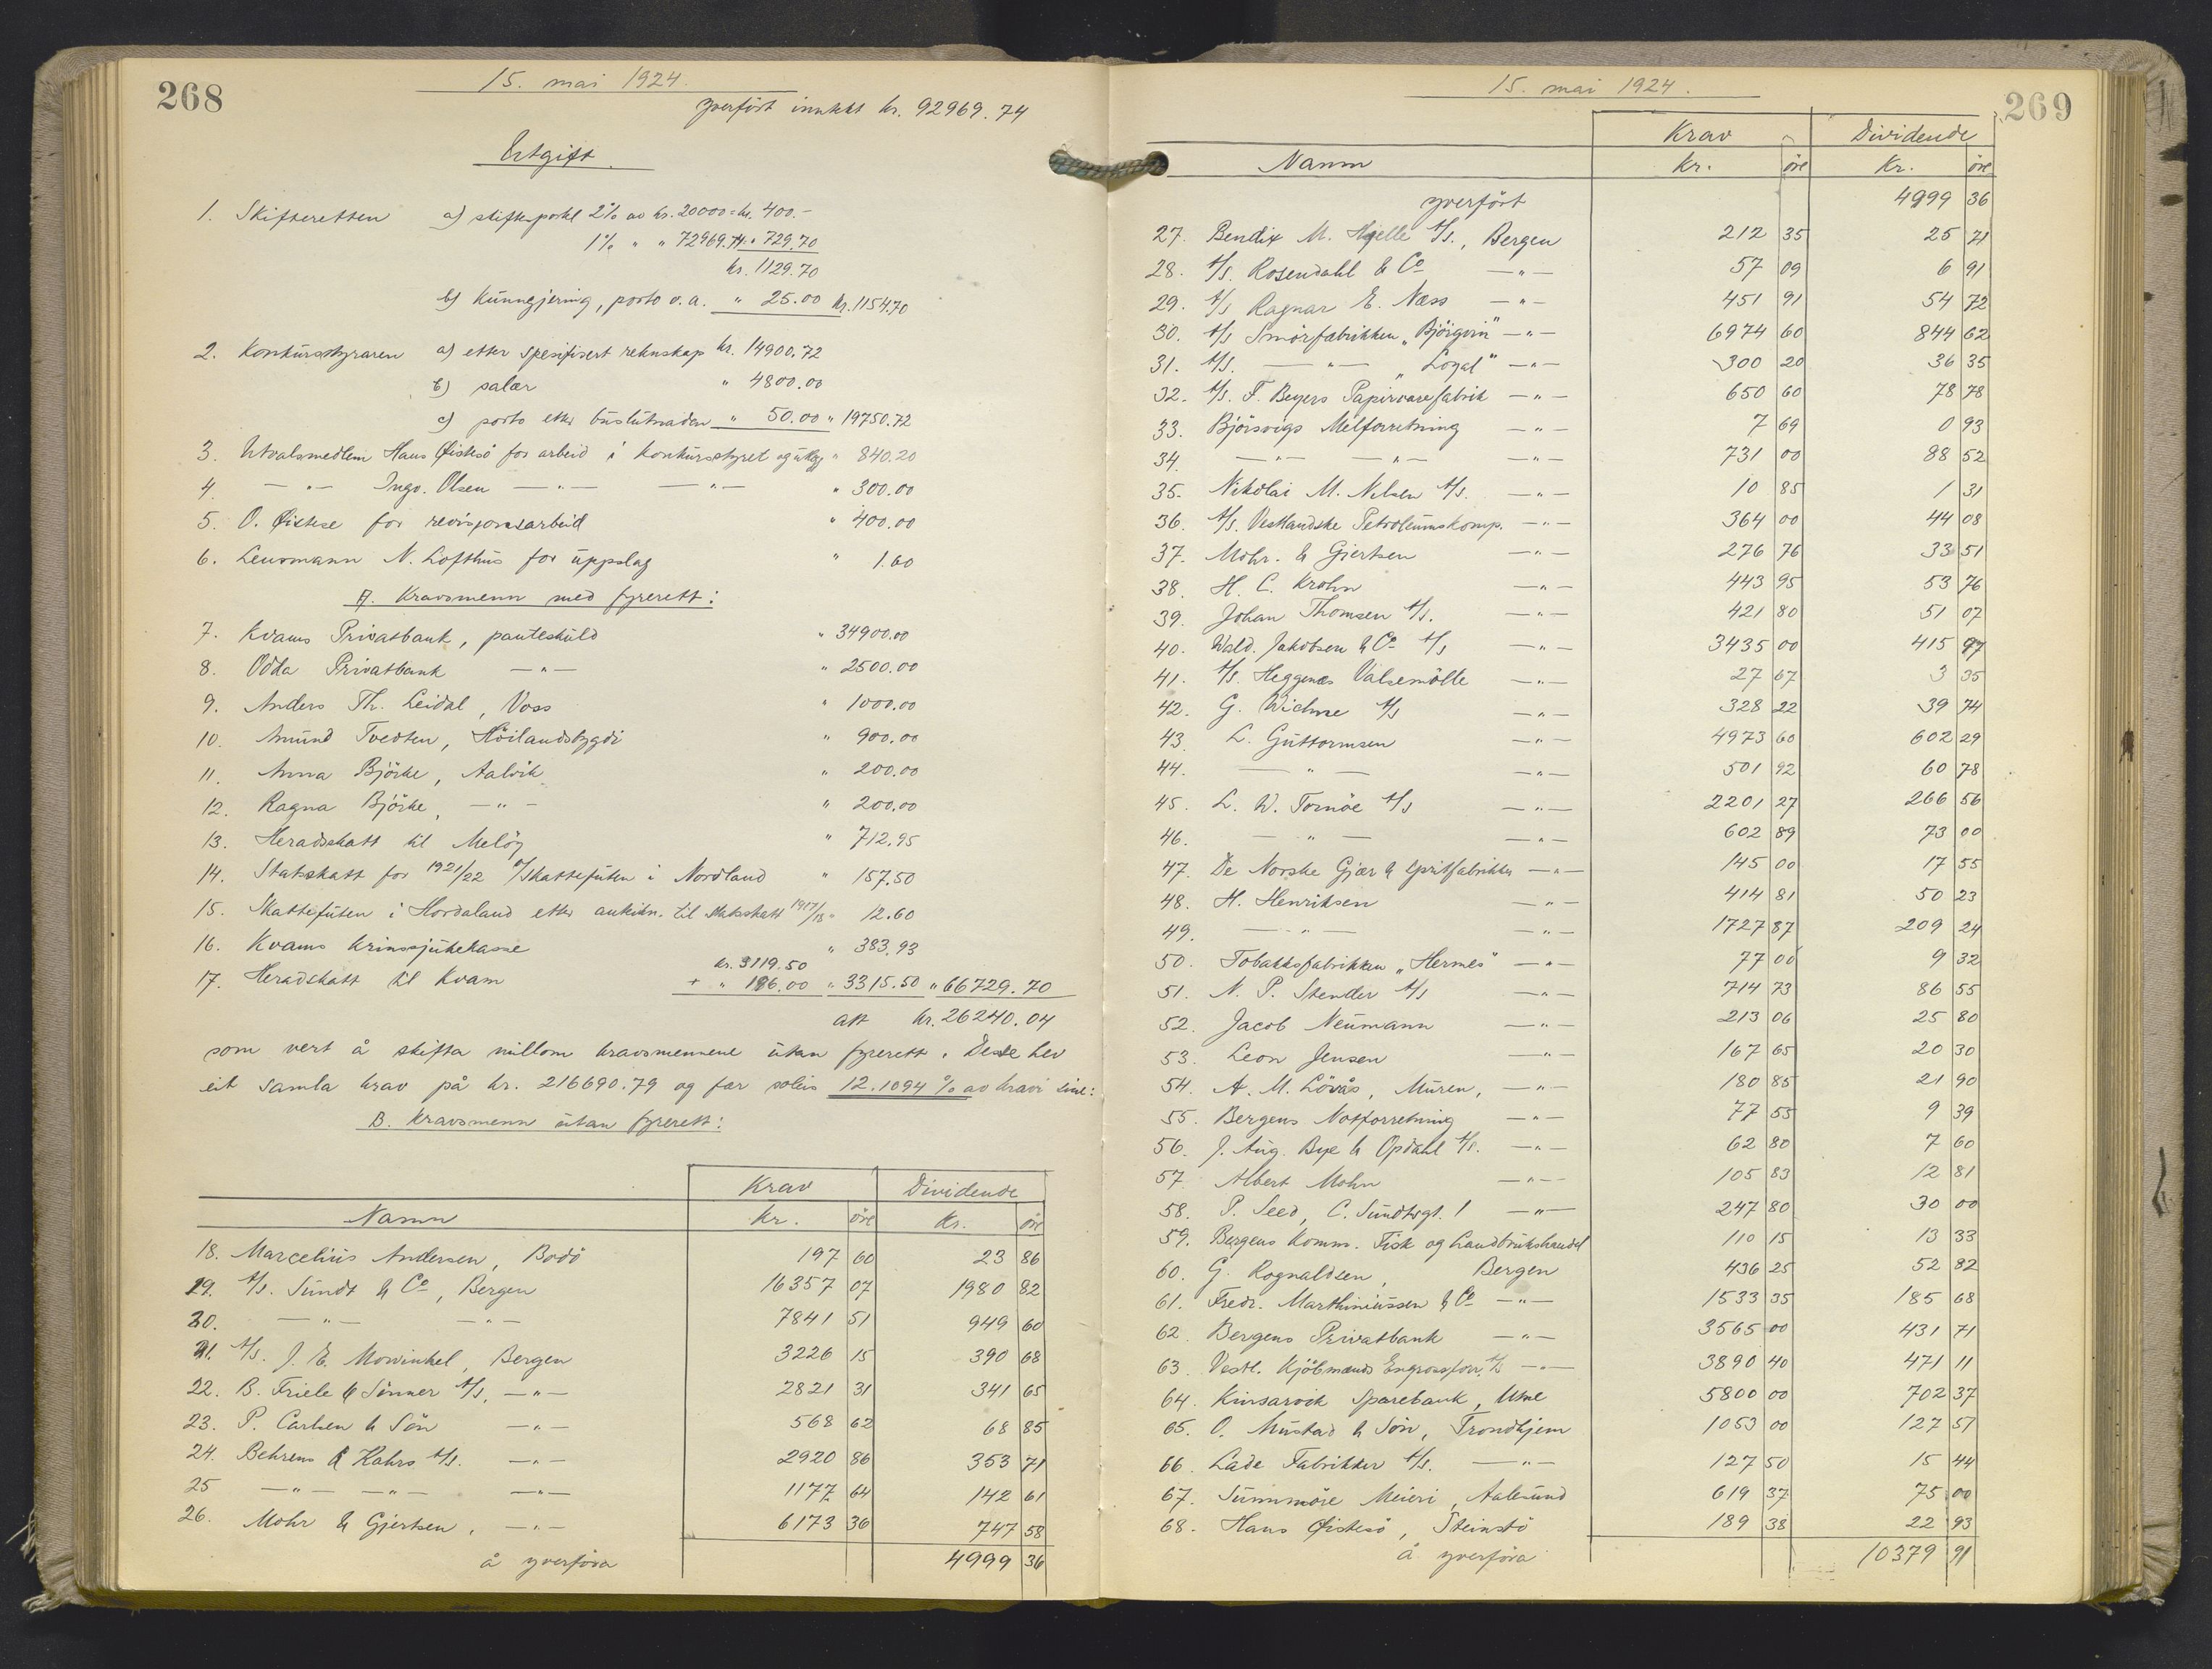 268
15. mai 1924.
yverført inntekt kr. 92969.74
Utgift.
1. Skifteretten a) skifteportel 2% av kr. 20000 = kr. 400.-
1% " " 72969.74 = " 729.70
kr. 1129.70
b) Kunngjering, porto o.a. " 25.00 kr. 1154.70
2. Konkursstyraren a) etter spesifisert rekneskap kr. 14900.72
b) salær " 4800.00
c) porto etter buslutnaden " 50.00 " 19750.72
3. Utvalsmedlem Hans Øistesø for arbeid i konkursstyret og utlegg " 840.20
4. — " — Ingv. Olsen — " — — " — " 300.00
5. O. Øistese for revisjonsarbeid " 400.00
6. Lensmann N. Lofthus for uppslag " 1.60
A. Kravsmenn med fyrerett:
7. Kvams Privatbank, panteskuld " 34900.00
8. Odda Privatbank — " — " 2500.00
9. Anders Th. Leidal, Voss " 1000.00
10. Amund Tvedten, Höilandsbygdi " 900.00
11. Anna Björke, Aalvik " 200.00
12. Ragna Björke, — " — " 200.00
13. Heradsskatt til Melöy " 712.95
14. Statsskatt for 1921/22 t/Skattefuten i Nordland " 157.50
15. Skattefuten i Hordaland etter auksjon. til statsskatt 1917/18 " 12.60
16. Kvams krinssjukekasse " 383.93
kr. 3119.50
17. Heradskatt til Kvam + " 196.00 " 3315.50 " 66729.70
att kr. 26240.04
som vert å skifta millom kravsmennene utan fyrerett. Desse hev
eit samla krav på kr. 216690.79 og fær soleis 12.1094 % av kravi sine:
B. Kravsmenn utan fyrerett:
Namn Krav Dividende
Kr. öre Kr. öre
18. Marcelius Andersen, Bodö 197 60 23 86
19. A/S. Sundt & Co, Bergen 16357 07 1980 82
20. — " — — " — 7841 51 949 60
21. A/S. J. E. Mowinkel, Bergen 3226 15 390 68
22. B. Friele & Sönner A/S, — " — 2821 31 341 65
23. P. Carlsen & Sön — " — 568 62 68 85
24. Behrens & Kahrs A/S. — " — 2920 86 353 71
25 — " — — " — — " — 1177 64 142 61
26. Mohr & Gjertsen, — " — 6173 36 747 58
å yverföra 4999 36
269
15. mai 1924.
Namn Krav Dividende
Kr. öre Kr. öre
yverfört 4999 36
27. Bendix M. Hjelle A/S., Bergen 212 35 25 71
28. A/S. Rosendahl & Co — " — 57 09 6 91
29. A/S Ragnar E. Næss — " — 451 91 54 72
30. A/S Smörfabrikken "Björgvin" — " — 6974 60 844 62
31. A/S. — " — "Loyal" — " — 300 20 36 35
32. A/S. F. Beyers Papirvarefabrik — " — 650 60 78 78
33. Björsvigs Melforretning — " — 7 69 0 93
34. — " — — " — — " — 731 00 88 52
35. Nikolai M. Nilsen A/S. — " — 10 85 1 31
36. A/S. Vestlandske Petroleumskomp. — " — 364 00 44 08
37. Mohr & Gjertsen — " — 276 76 33 51
38. H. C. Krohn — " — 443 95 53 76
39. Johan Thomsen A/S. — " — 421 80 51 07
40. Wald. Jakobsen & Co A/S — " — 3435 00 415 97
41. A/S. Heggenes Valsemölle — " — 27 67 3 35
42. G. Wichne A/S — " — 328 22 39 74
43. L. Guttormsen — " — 4973 60 602 29
44. — " — — " — 501 92 60 78
45. L. W. Tornöe A/S — " — 2201 27 266 56
46. — " — — " — 602 89 73 00
47. De Norske Gjær & Spritfabrikker — " — 145 00 17 55
48. H. Henriksen — " — 414 81 50 23
49. — " — — " — 1727 87 209 24
50. Tobakksfabrikken "Hermes" — " — 77 00 9 32
51. N. P. Stender A/S — " — 714 73 86 55
52. Jacob Neumann — " — 213 06 25 80
53. Leon Jensen — " — 167 65 20 30
54. A. M. Lövås, Muren, — " — 180 85 21 90
55. Bergens Notforretning — " — 77 55 9 39
56. J. Aug. Bye & Opdahl A/S. — " — 62 80 7 60
57. Albert Mohn — " — 105 83 12 81
58. P. Seed, C. Sundtsgt. 1 — " — 247 80 30 00
59. Bergens Komm. Fisk og Landbrukshandel 110 15 13 33
60. G. Rognaldsen, Bergen 436 25 52 82
61. Fredr. Marthiniussen & Co — " — 1533 35 185 68
62. Bergens Privatbank — " — 3565 00 431 71
63. Vestl. Kjöbmænds Engrosforr. A/S — " — 3890 40 471 11
64. Kinsarvik Sparebank, Utne 5800 00 702 37
65. O. Mustad & Sön, Trondhjem 1053 00 127 51
66. Lade Fabrikker A/S. — " — 127 50 15 44
67. Sunnmöre Meieri, Aalesund 619 37 75 00
68. Hans Øistesö, Steinstö 189 38 22 93
å yverföra 10379 91